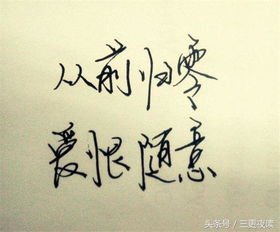 从前归零
爱恨随意
头条号/三更夜读